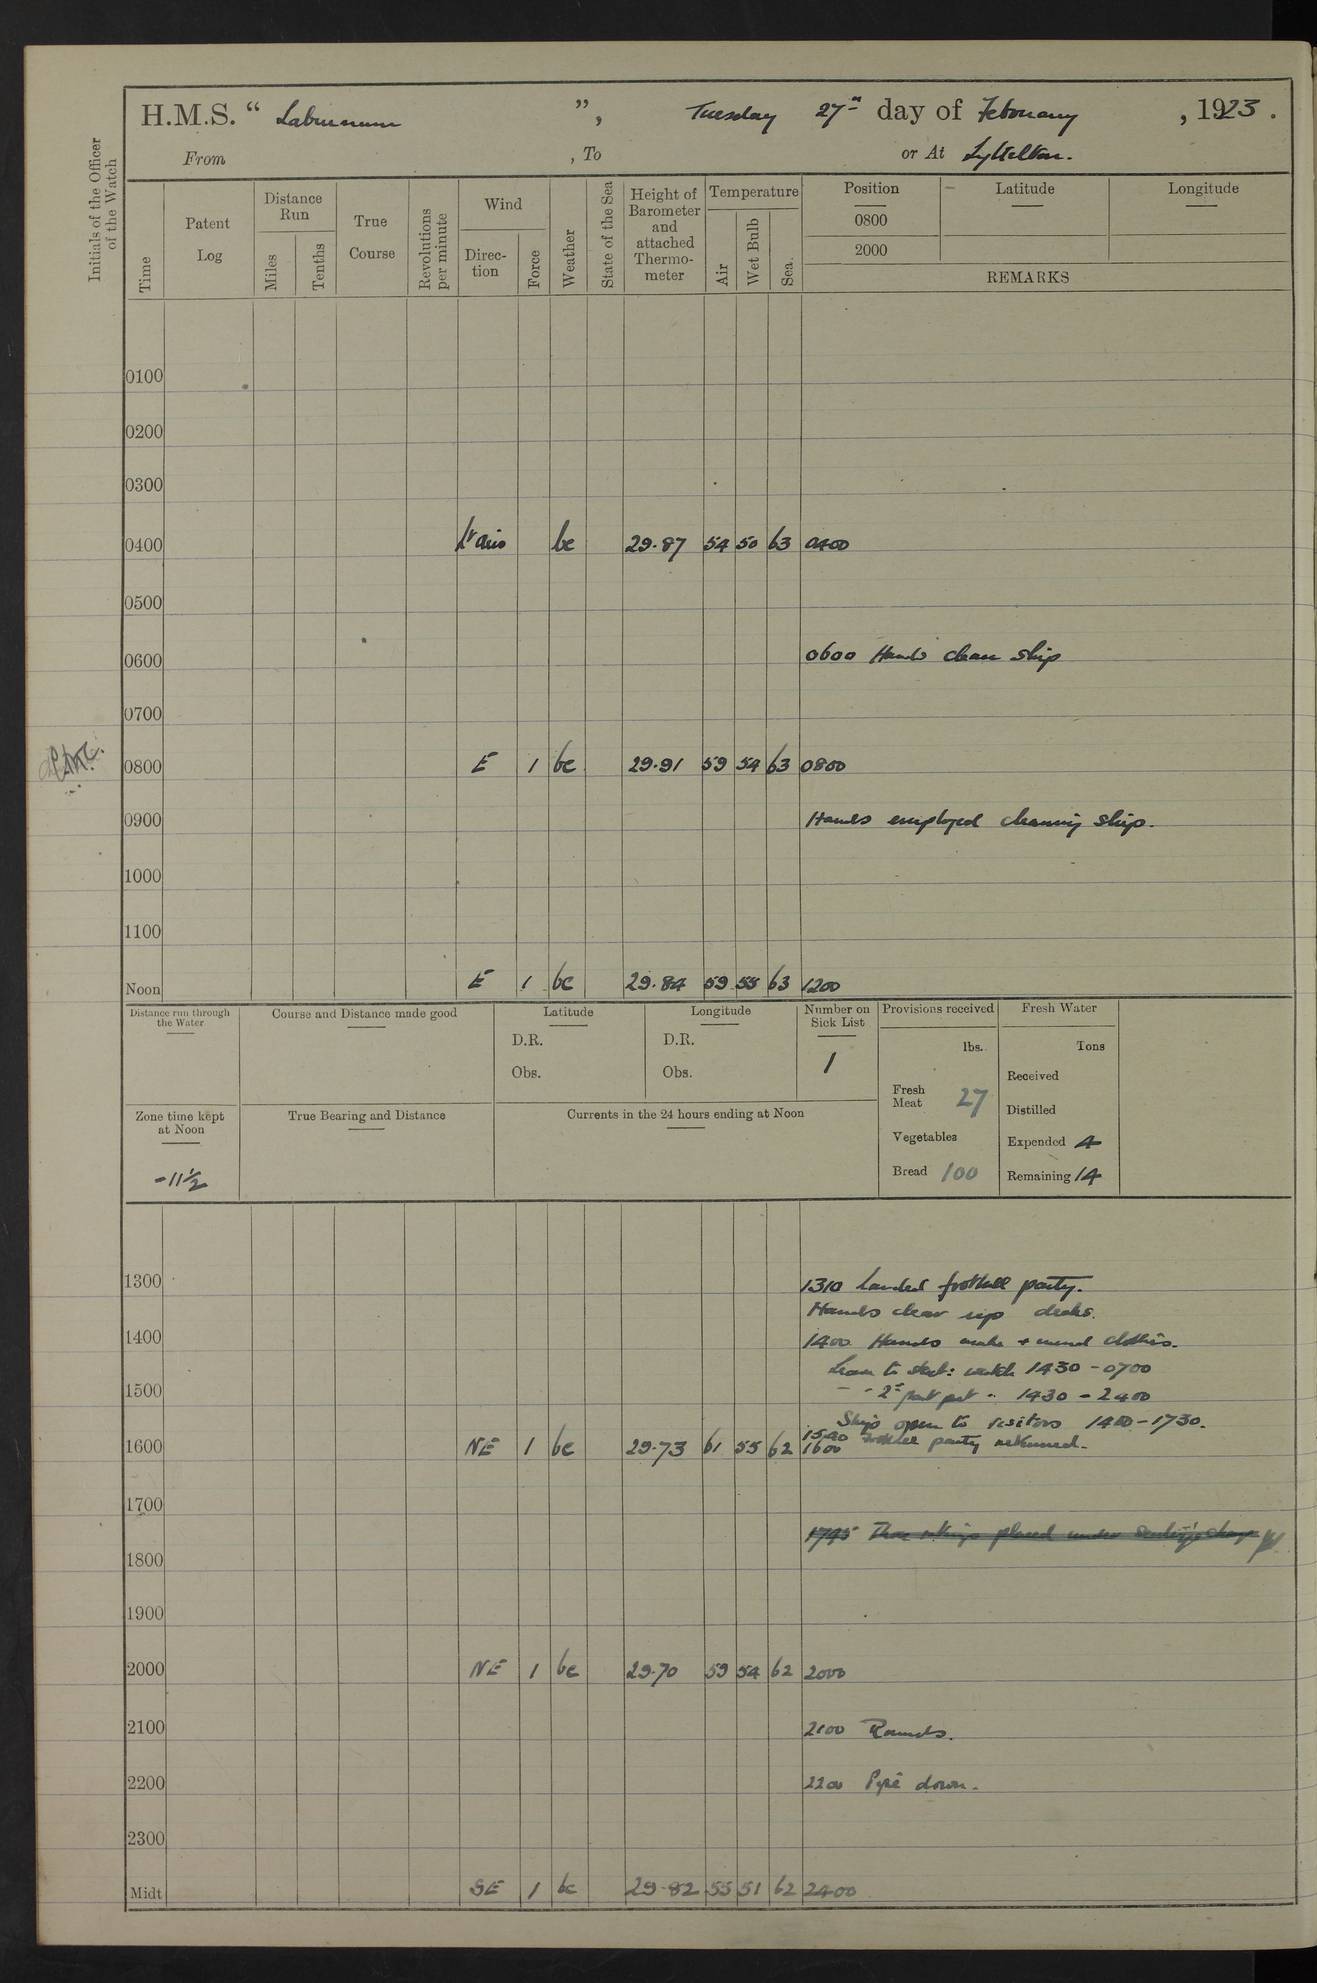 H.M.S. “ Laburnum ”, Tuesday 27th day of February , 1923 .
From , To or At Lyttelton.
Initials of the Officer of the Watch
Time
Patent Log
Distance Run
Miles
Tenths
True Course
Revolutions per minute
Wind
Direc-tion
Force
Weather
State of the Sea
Height of Barometer and attached Thermo-meter
Temperature
Air
Wet Bulb
Sea.
Position
Latitude
Longitude
0800
2000
REMARKS
0100
0200
0300
0400 Lt airs bc 29.87 54 50 63 0400
0500
0600 0600 Hands clean ship
0700
0800 E 1 bc 29.91 59 54 63 0800
0900 Hands employed cleaning ship.
1000
1100
Noon E 1 bc 29.84 59 55 63 1200
Distance run through the Water
Course and Distance made good
Latitude
D.R.
Obs.
Longitude
D.R.
Obs.
Number on Sick List
1
Provisions received
lbs.
Fresh Meat 27
Vegetables
Bread 100
Fresh Water
Tons
Received
Distilled
Expended 4
Remaining 14
Zone time kept at Noon
-11½
True Bearing and Distance
Currents in the 24 hours ending at Noon
1300 1310 Landed football party.
Hands clear up decks.
1400 1400 Hands make + mend clothes.
Leave to starb: watch 1430 - 0700
1500 - - 2nd part port - 1430 - 2400
Ship open to visitors 1400 - 1730.
1540 Football party returned.
1600 NE 1 bc 29.73 61 55 62 1600
1700
1745 Three ratings placed under sentry's charge
1800
1900
2000 NE 1 bc 29.70 59 54 62 2000
2100 2100 Rounds.
2200 2200 Pipe down.
2300
Midt SE 1 bc 29.82 55 51 62 2400